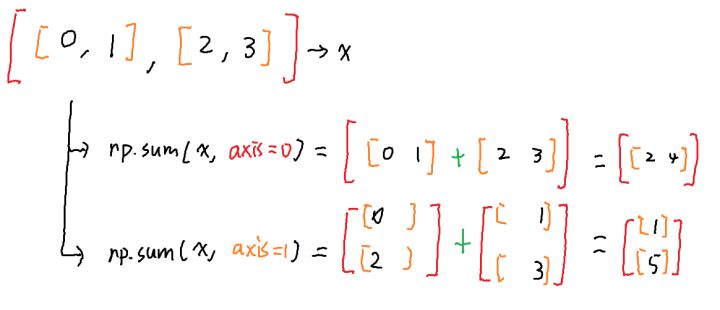 [[0, 1], [2, 3]] → x
→ np.sum(x, axis=0) = [[0 1] + [2 3]] = [[2 4]]
→ np.sum(x, axis=1) = [[0 ] [2 ]] + [[ 1] [ 3]] = [[1] [5]]